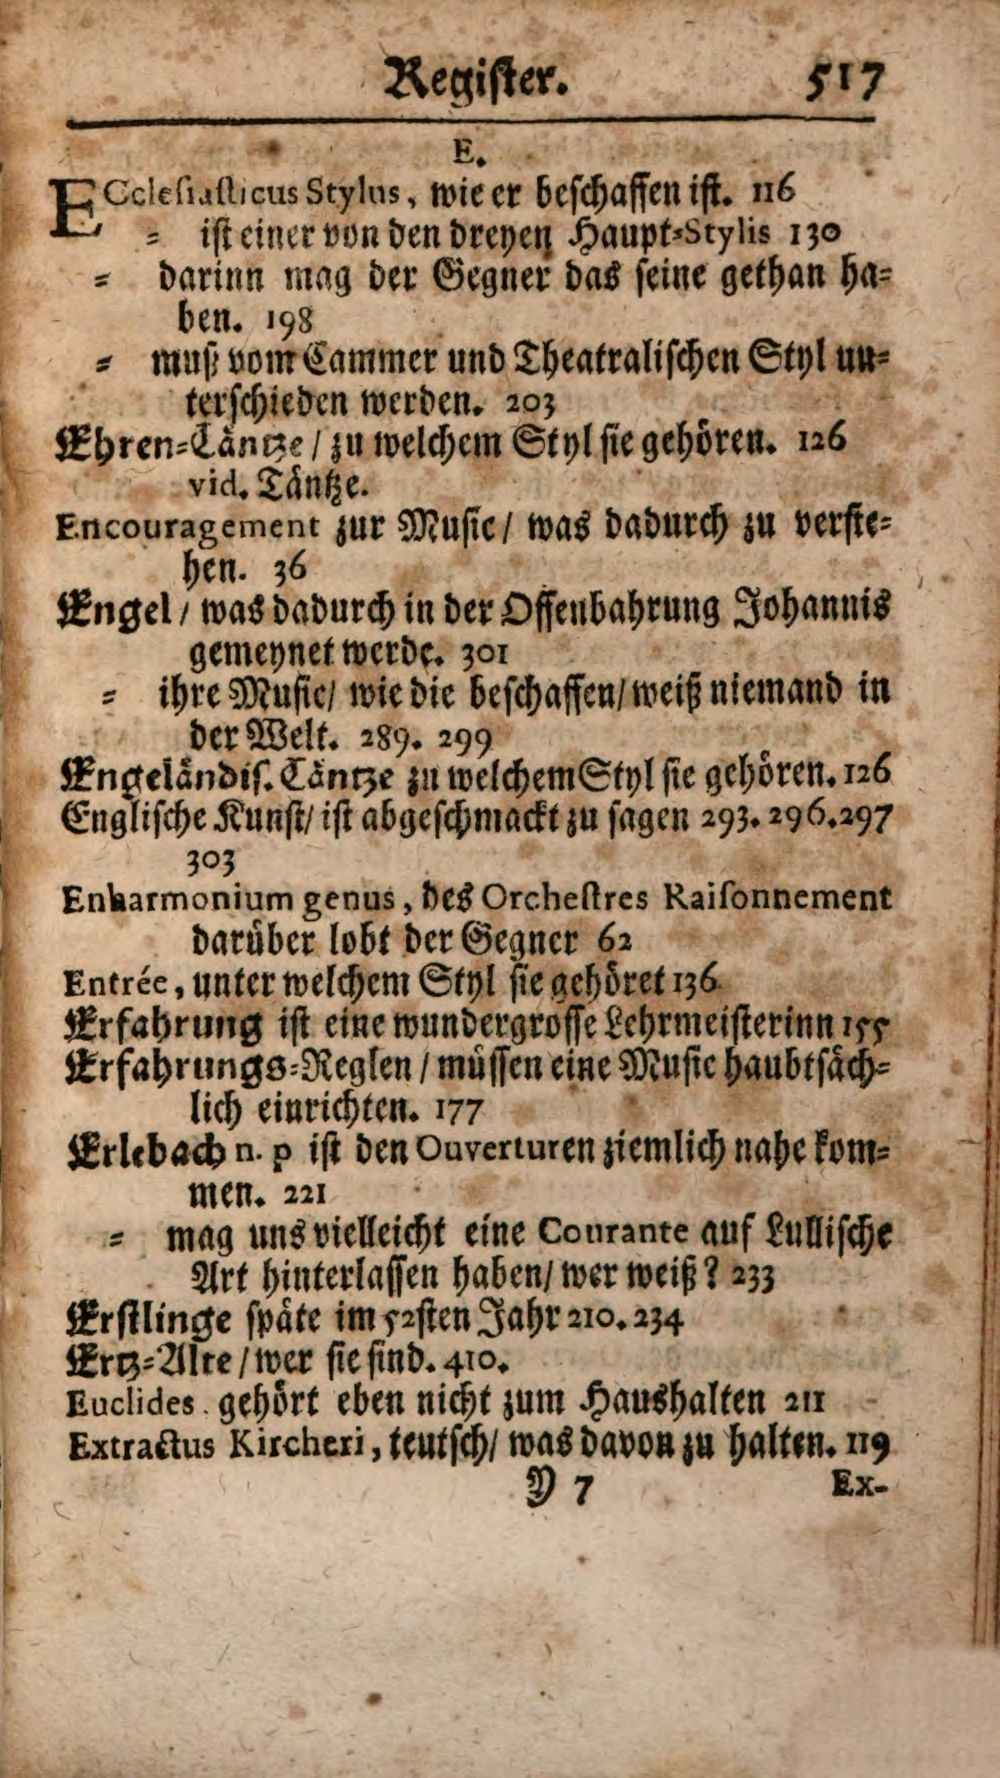 Register. 517
E.
ECclesiasticus Stylus, wie er beschaffen ist. 116
⸗ ist einer von den dreyen Haupt⸗Stylis 130
⸗ darinn mag der Gegner das seine gethan ha⸗
ben. 198
⸗ muß vom Cammer und Theatralischen Styl un⸗
terschieden werden. 203
Ehren⸗Täntze / zu welchem Styl sie gehören. 126
vid. Täntze.
Encouragement zur Music / was dadurch zu verste⸗
hen. 36
Engel / was dadurch in der Offenbahrung Johannis
gemeynet werde. 301
⸗ ihre Music / wie die beschaffen / weiß niemand in
der Welt. 289. 299
Engeländis. Täntze zu welchem Styl sie gehören. 126
Englische Kunst / ist abgeschmackt zu sagen 293. 296. 297
303
Enharmonium genus, des Orchestres Raisonnement
darüber lobt der Gegner 62
Entrée, unter welchem Styl sie gehöret 136
Erfahrung ist eine wundergrosse Lehrmeisterinn 155
Erfahrungs⸗Reglen / müssen eine Music haubtsäch⸗
lich einrichten. 177
Erlebach n. p ist den Ouverturen ziemlich nahe kom⸗
men. 221
⸗ mag uns vielleicht eine Courante auf Lullische
Art hinterlassen haben / wer weiß? 233
Erstlinge späte im 52sten Jahr 210. 234
Ertz⸗Alte / wer sie sind. 410.
Euclides. gehört eben nicht zum Haushalten 211
Extractus Kircheri, teutsch / was davon zu halten. 119
Y 7 Ex-